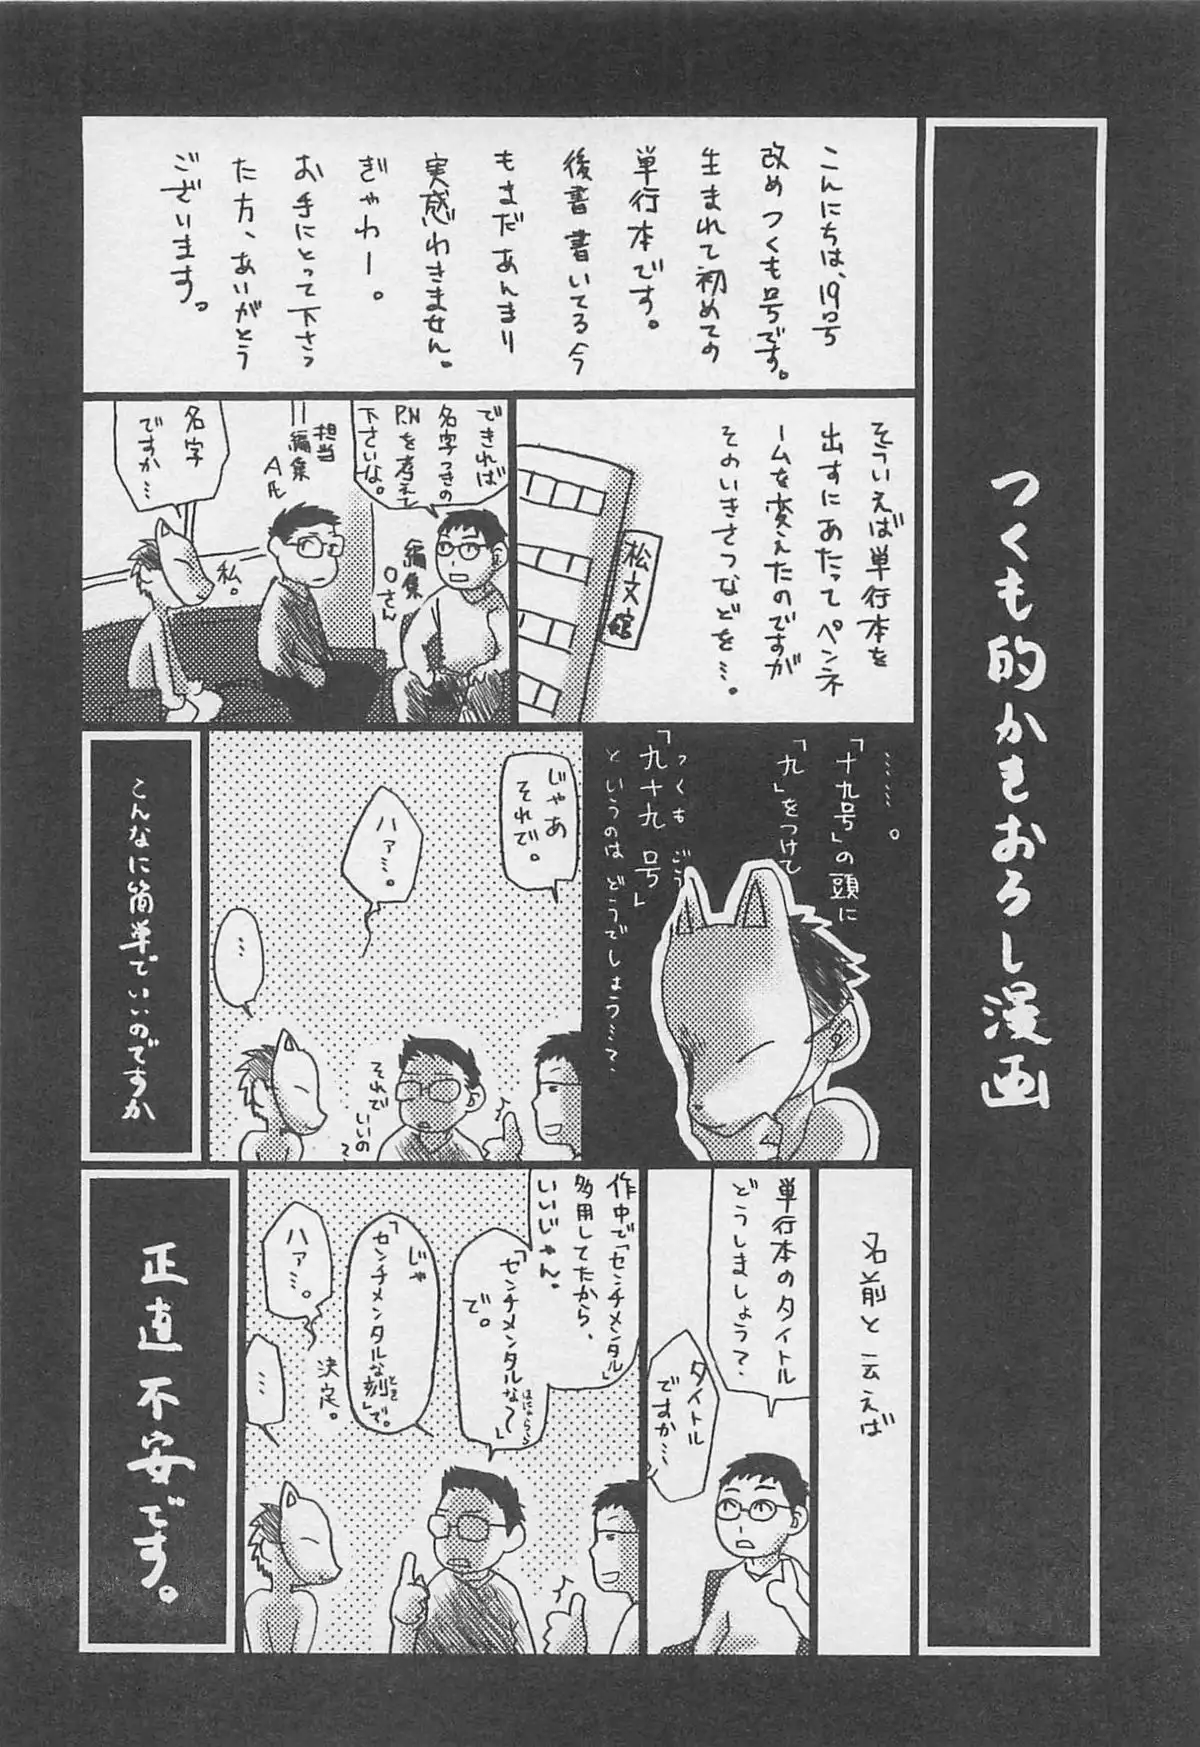 つくも的かきおろし漫画
こんにちは、19号
改めつくも号です。
生まれて初めての
単行本です。
後書書いてる今
もまだあんまり
実感わきません。
ぎゃわー。
お手にとって下さっ
た方、あいがとう
ございます。
そういえば単行本を
出すにあたってペンネ
ームを変えたのですが
そのいきさつなどを…。
松文館
できれば
名字つきの
P.Nを考えて
下さいな。
編集
Oさん
担当
編集
A氏
名字
ですか…
私。
……。
「十九号」の頭に
「九」をつけて
つくも ごう
「九十九 号」
というのはどうでしょう…?
じゃあ
それで。
ハァ…。
…
それで
いいの?
こんなに簡単でいいのですか
名前と云えば
単行本のタイトル
どうしましょう?
タイトル
ですか…
作中で「センチメンタル」
多用してたから、
いいじゃん。
「センチメンタルな〜」
で。
じゃ
「センチメンタルな刻」で。
とき
ハァ…。
決定。
…
正直不安です。